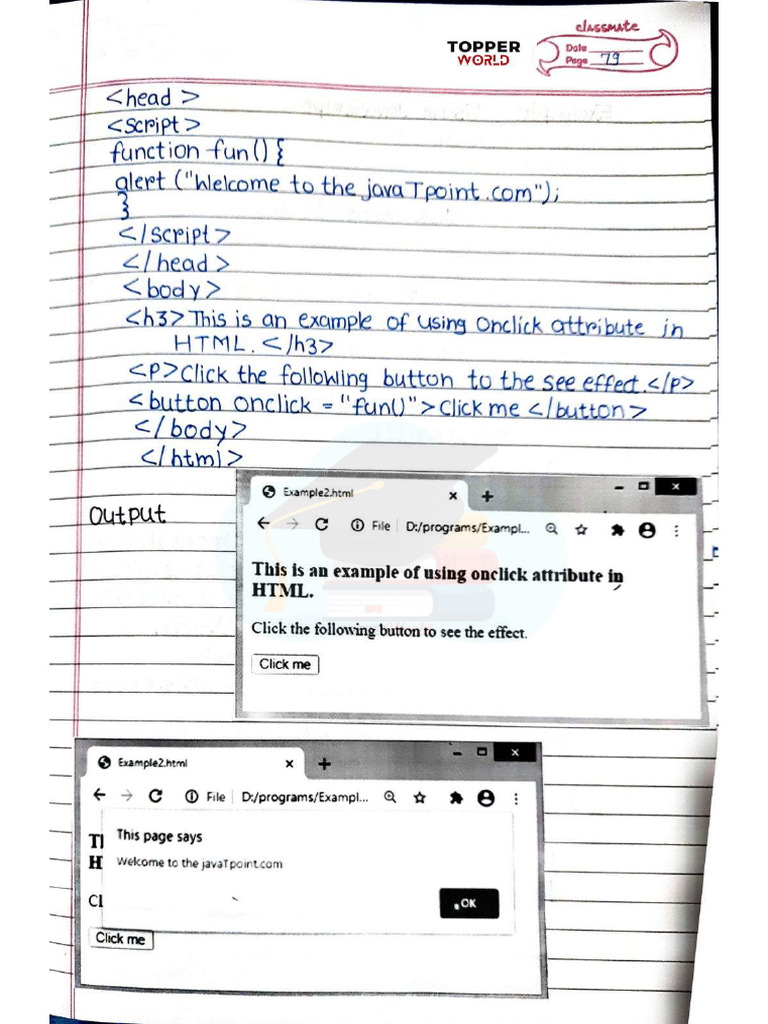 classmate
TOPPER
WORLD
Date
Page 79
<head >
<script>
function fun() {
alert ("Welcome to the javaTpoint.com");
}
</script>
</head>
<body>
<h3>This is an example of using onclick attribute in
HTML. </h3>
<P>Click the following button to the see effect.</p>
<button onclick = "fun()">Click me </button>
</body>
</html>
Output
Example2.html
File D:/programs/Exampl...
This is an example of using onclick attribute in
HTML.
Click the following button to see the effect.
Click me
Example2.html
File D:/programs/Exampl...
This page says
Welcome to the javaTpoint.com
OK
Cl
Click me